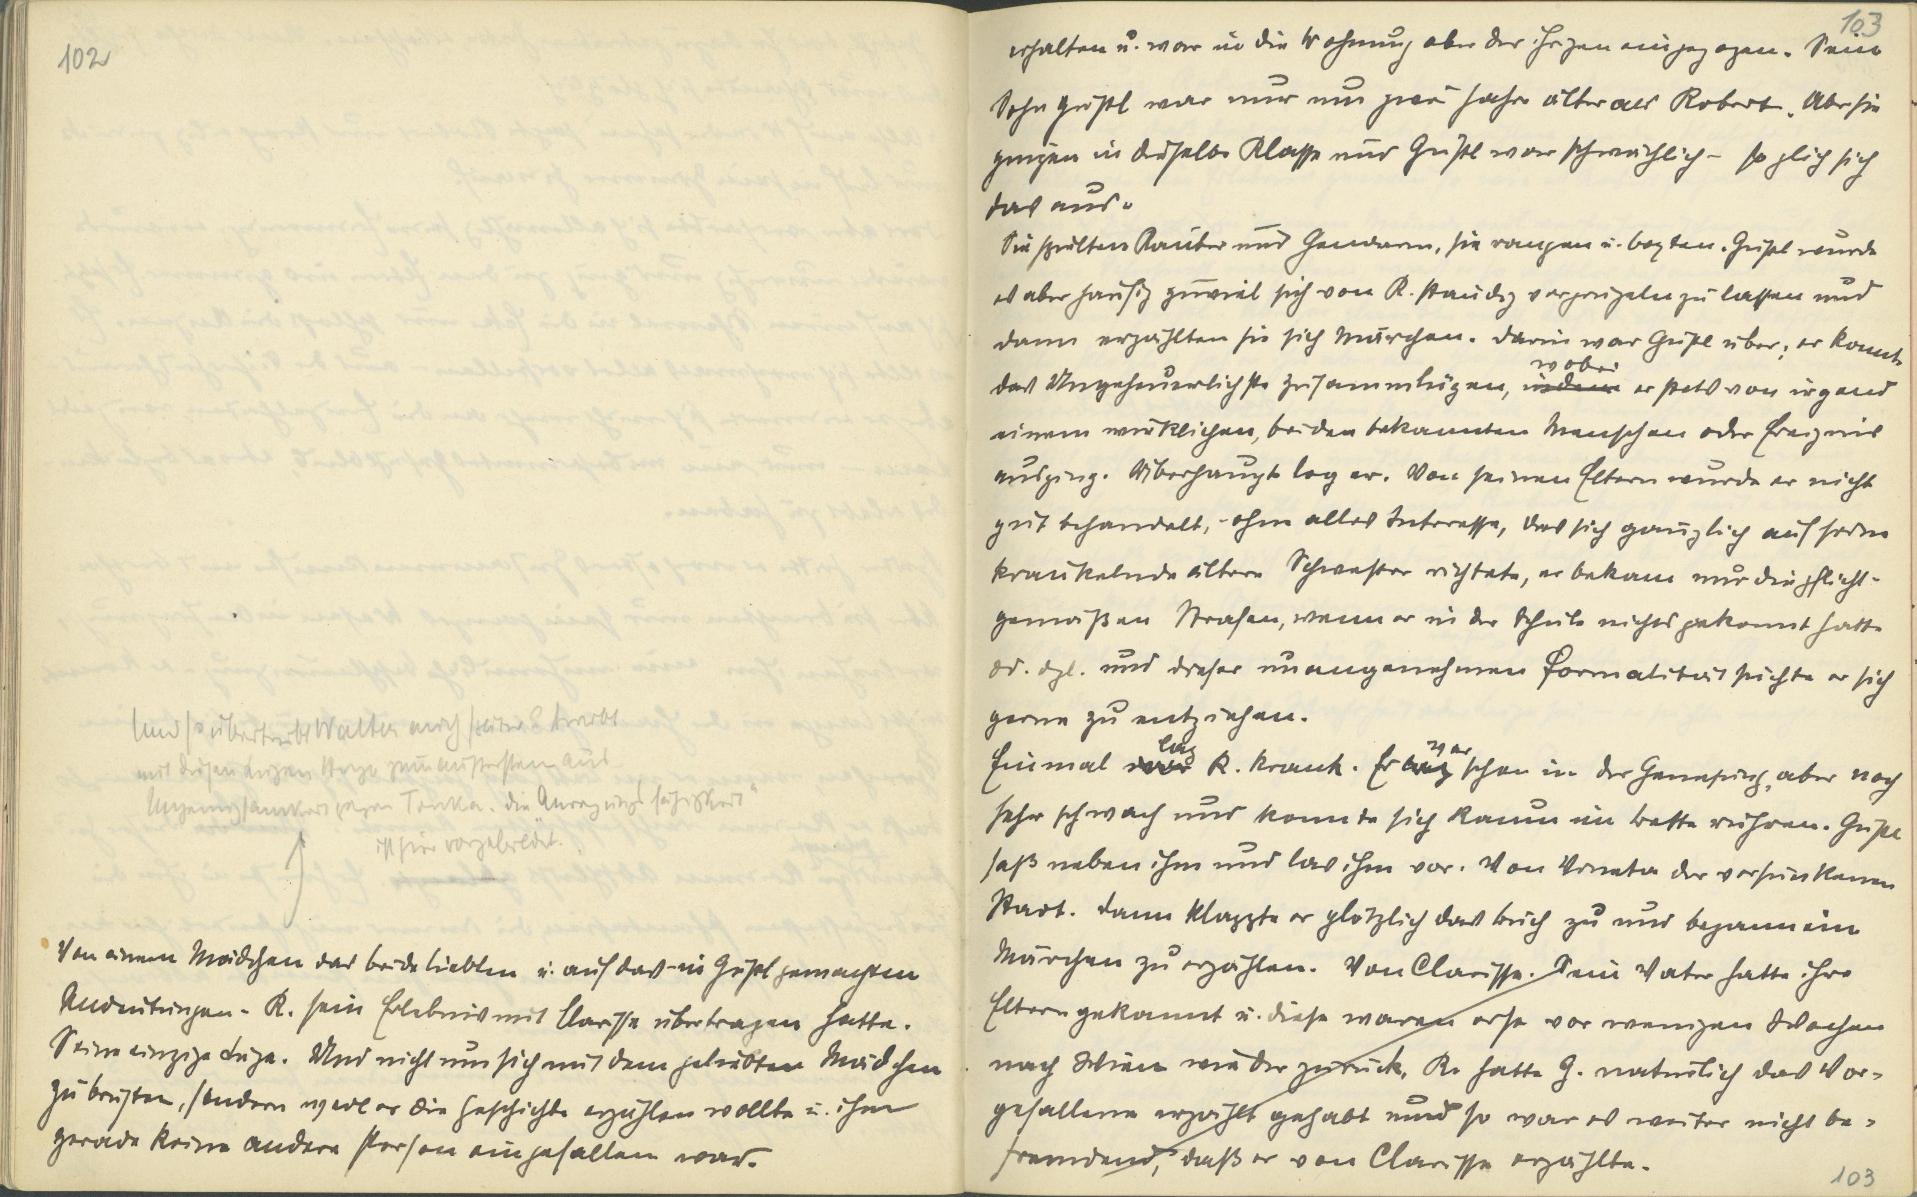 102
Und so übertreibt Walter auch seine Liebe
mit diesen Lügen
gegen Tonka. die Anregungsfähigkeit"
ist hier vorgebildet.
Von einem Mädchen das beide liebten u. auf das - in Gustl gemachten
Andeutungen - R. sein Erlebnis mit Clarisse übertragen hatte.
Seine einzige Lüge. Und nicht um sich mit dem geliebten Mädchen
zu brüsten, sondern weil er die Geschichte erzählen wollte u. ihm
gerade keine andere Person eingefallen war.
103
erhalten u. war in die Wohnung ober der ihrigen eingezogen. Sein
Sohn Gustl war nur um zwei Jahre älter als Robert. Aber sie
gingen in dieselbe Klasse und Gustl war schwächlich - so glich sich
das aus.
Sie spielten Räuber und Gendarm, sie rangen u. boxten. Gustl wurde
es aber häufig zuviel sich von R. ständig verprügeln zu lassen und
dann erzählten sie sich Märchen. Darin war Gustl über; er konnte
das Ungeheuerlichste zusammenlügen, indem wobei er stets von irgend
einem wirklichen, beiden bekannten Menschen oder Ereignis
ausging. Überhaupt log er. Von seinen Eltern wurde er nicht
gut behandelt, - ohne alles Interesse, das sich gänzlich auf seine
kränkelnde ältere Schwester richtete, er bekam nur die pflicht-
gemäßen Strafen, wenn er in der Schule nichts gekonnt hatte
od. dgl. und dieser unangenehmen Formalität suchte er sich
gerne zu entziehen.
Einmal war lag R. krank. Er lag war schon in der Genesung, aber noch
sehr schwach und konnte sich kaum im Bette rühren. Gustl
saß neben ihm und las ihm vor. Von Vineta der versunkenen
Stadt. Dann klappte er plötzlich das Buch zu und begann ein
Märchen zu erzählen. Von Clarisse. Sein Vater hatte ihre
Eltern gekannt u. diese waren erst vor wenigen Wochen
nach Wien wieder zurück. R. hatte G. natürlich das Vor-
gefallene erzählt gehabt und so war es weiter nicht be-
fremdend, daß er von Clarisse erzählte.
103